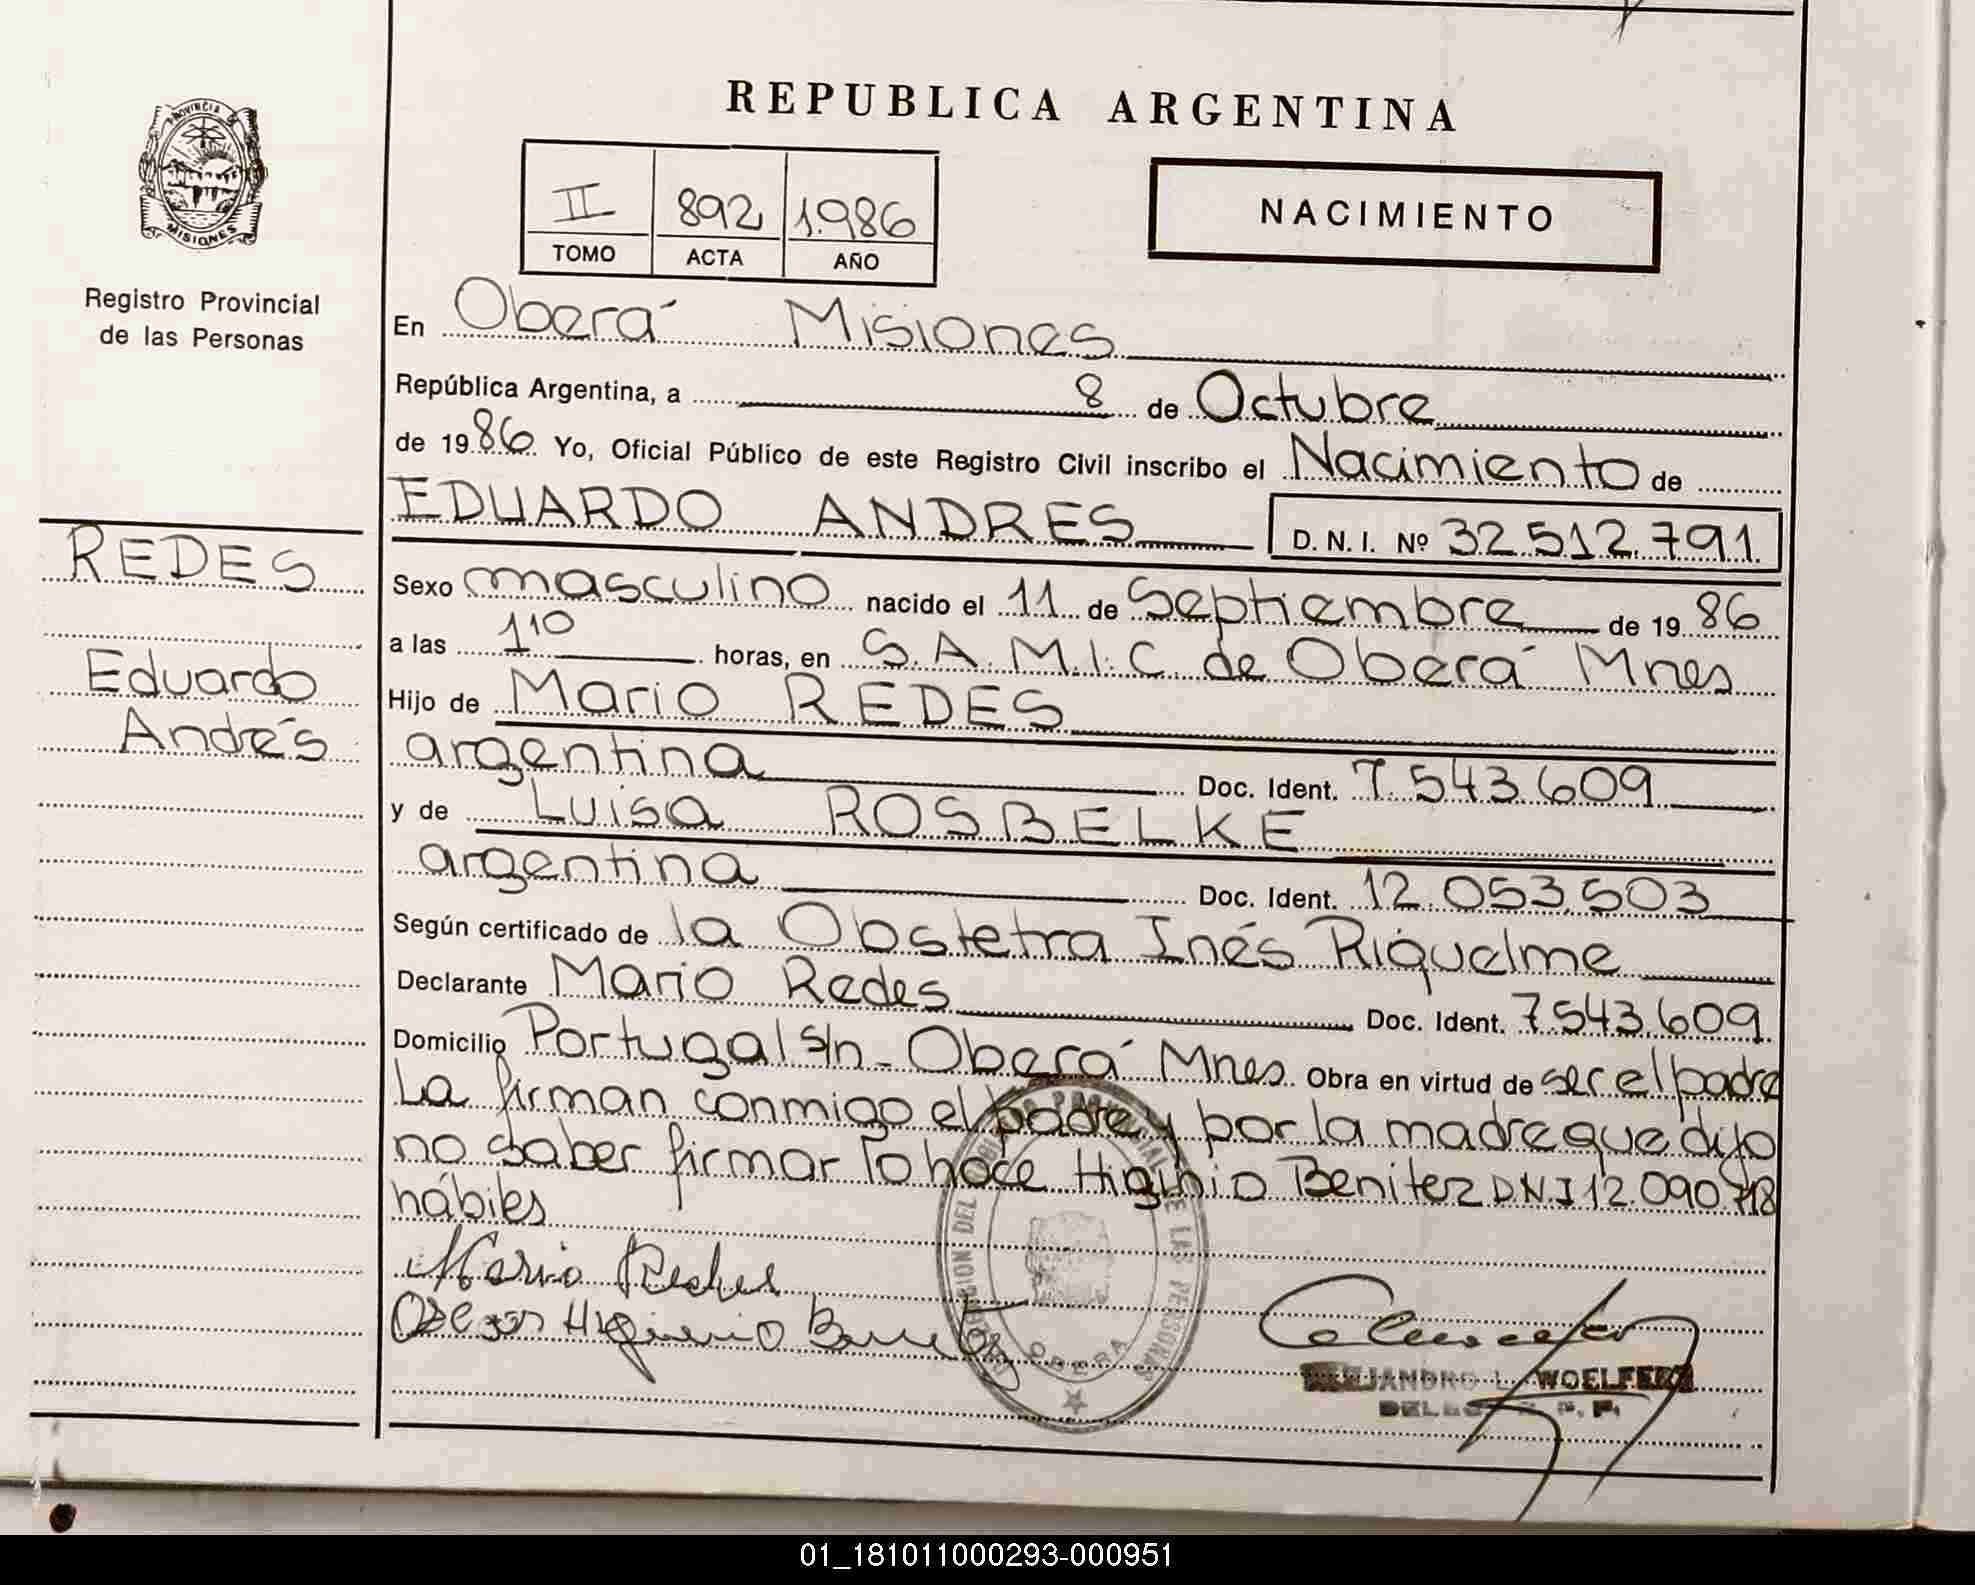 PROVINCIA DE
MISIONES
Registro Provincial
de las Personas
REDES
Eduardo
Andrés
REPUBLICA ARGENTINA
II 892 1.986
TOMO ACTA AÑO
NACIMIENTO
En Oberá Misiones
República Argentina, a 8 de Octubre
de 1986 Yo, Oficial Público de este Registro Civil inscribo el Nacimiento de
EDUARDO ANDRES D. N. I. Nº 32.512.791.
Sexo masculino nacido el 11 de Septiembre de 1986
a las 1¹⁰ horas, en S.A.M.I.C de Oberá Mnes
Hijo de Mario REDES
argentina Doc. Ident. 7.543.609
y de Luisa ROSBELKE
argentina Doc. Ident. 12.053.503
Según certificado de la Obstetra Inés Riquelme
Declarante Mario Redes Doc. Ident. 7.543.609
Domicilio Portugal s/n - Oberá Mnes Obra en virtud de ser el padre
La firman conmigo el padre y por la madre que dijo
no saber firmar lo hace Higinio Benitez D.N.I 12.090.718
hábiles
Mario Redes
Higinio
OBERA
ALEJANDRO L. WOELFERT
01_181011000293-000951